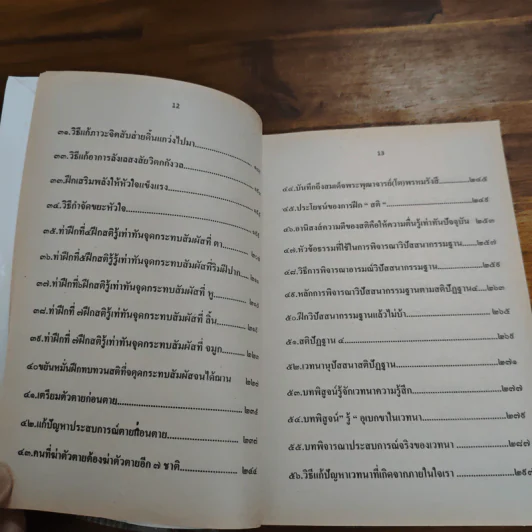 12
๓๑.วิธีแก้ภาวะจิตสับส่ายดิ้นแกว่งไปมา
๓๓.วิธีแก้อาการลังเลสงสัยวิตกกังวล
๓๓.ฝึกเสริมพลังให้หัวใจแข็งแรง
๓๔.วิธีกำจัดขยะหัวใจ
๓๕.ท่าฝึกที่๔ฝึกสติรู้เท่าทันจุดกระทบสัมผัสที่ ตา
๓๖.ท่าฝึกที่๕ฝึกสติรู้เท่าทันจุดกระทบสัมผัสที่ริมฝีปาก
๓๗.ท่าฝึกที่๖ฝึกสติรู้เท่าทันจุดกระทบสัมผัสที่ หู
๓๘.ท่าฝึกที่ ๗ฝึกสติรู้เท่าทันจุดกระทบสัมผัสที่ ลิ้น
๓๙.ท่าฝึกที่ ๘ฝึกสติรู้เท่าทันจุดกระทบสัมผัสที่ จมูก
๔๐ขยันหมั่นฝึกทบทวนสติที่จุดกระทบสัมผัสจนได้ฌาน
๔๑.เตรียมตัวตายก่อนตาย ๒๓๕
๔๒.แก้ปัญหาประสบการณ์ตายก่อนตาย ๒๓๘
๔๓.คนที่ฆ่าตัวตายต้องฆ่าตัวตายอีก ๗ ชาติ ๒๔๔
13
๔๔.บันทึกถึงสมเด็จพระพุฒาจารย์(โต)พรหมรังสี ๒๔๕
๔๕.ประโยชน์ของการฝึก " สติ " ๒๔๙
๔๖.อานิสงส์ความดีของสติคือให้ความตื่นรู้เท่าทันปัจจุบัน ๒๕๓
๔๗.หัวข้อธรรมที่ใช้ในการพิจารณาวิปัสสนากรรมฐาน ๒๕๗
๔๘.วิธีการพิจารณาอารมณ์วิปัสสนากรรมฐาน ๒๕๙
๔๙.หลักการพิจารณาวิปัสสนากรรมฐานตามสติปัฏฐาน๔ ๒๖๓
๕๐.ฝึกวิปัสสนากรรมฐานแล้วไม่บ้า ๒๖๕
๕๑.สติปัฏฐาน ๔ ๒๖๕
๕๒.เวทนานุปัสสนาสติปัฏฐาน ๒๗๑
๕๓.บทพิสูจน์รู้จักเวทนาความรู้สึก ๒๗๗
๕๔.บทพิสูจน์" รู้ " อุเบกขาในเวทนา
๕๕.บทพิจารณาประสบการณ์จริงของเวทนา ๒๘๗
๕๖.วิธีแก้ปัญหาเวทนาที่เกิดจากภายในใจเรา